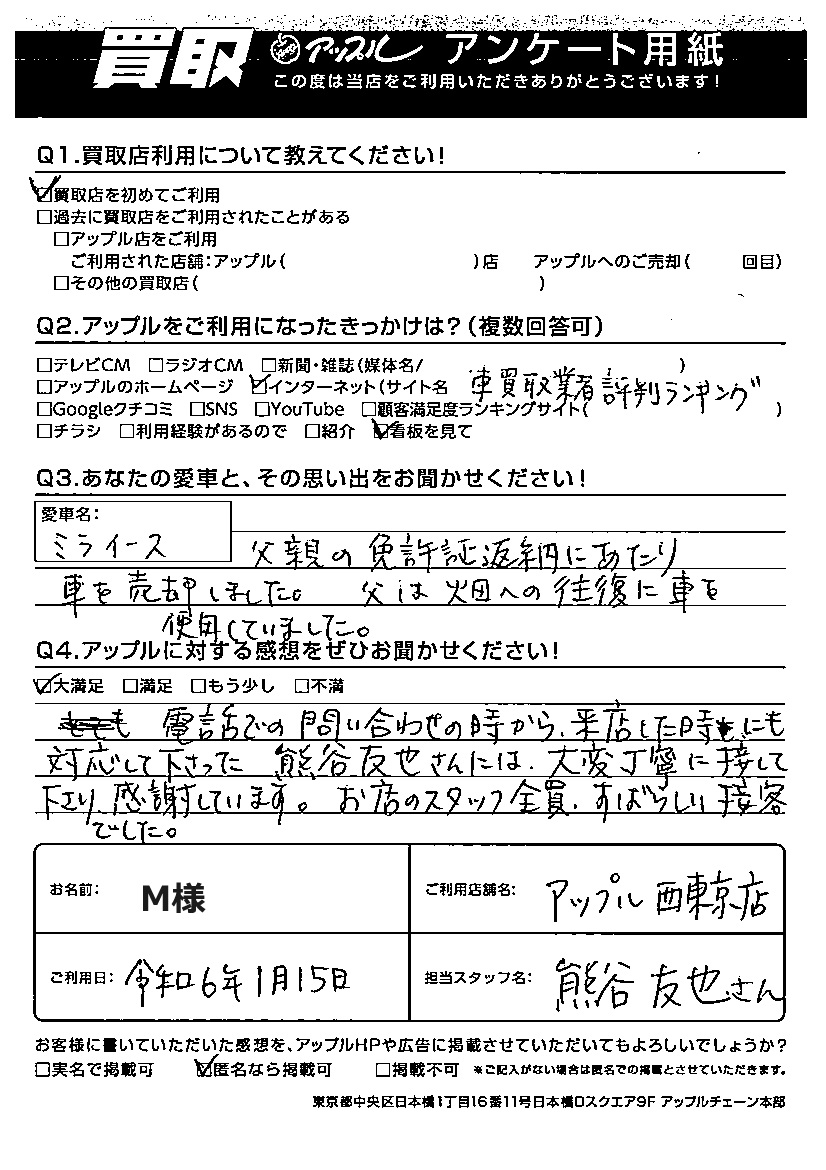 買取 アップル アンケート用紙
この度は当店をご利用いただきありがとうございます!
Q1.買取店利用について教えてください!
☑買取店を初めてご利用
□過去に買取店をご利用されたことがある
□アップル店をご利用
ご利用された店舗:アップル( )店 アップルへのご売却( 回目)
□その他の買取店( )
Q2.アップルをご利用になったきっかけは?(複数回答可)
□テレビCM □ラジオCM □新聞・雑誌(媒体名/ )
□アップルのホームページ ☑インターネット(サイト名 車買取業者評判ランキング
□Googleクチコミ □SNS □YouTube □顧客満足度ランキングサイト( )
□チラシ □利用経験があるので □紹介 ☑看板を見て
Q3.あなたの愛車と、その思い出をお聞かせください!
愛車名:
ミライース 父親の免許証返納にあたり
車を売却しました。 父は畑への往復に車を
使用していました。
Q4.アップルに対する感想をぜひお聞かせください!
☑大満足 □満足 □もう少し □不満
電話での問い合わせの時から、来店した時にも
対応して下さった 熊谷友也さんには、大変丁寧に接して
下さり、感謝しています。 お店のスタッフ全員、すばらしい接客
でした。
お名前: M様 ご利用店舗名: アップル 西東京店
ご利用日: 令和6年1月15日 担当スタッフ名: 熊谷 友也さん
お客様に書いていただいた感想を、アップルHPや広告に掲載させていただいてもよろしいでしょうか?
□実名で掲載可 ☑匿名なら掲載可 □掲載不可 ※ご記入がない場合は匿名での掲載とさせていただきます。
東京都中央区日本橋1丁目16番11号日本橋Dスクエア9F アップルチェーン本部